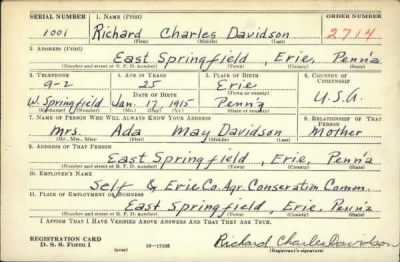 SERIAL NUMBER 1. NAME (Print) ORDER NUMBER
1001 Richard Charles Davidson 2714
(First) (Middle) (Last)
2. ADDRESS (Print)
East Springfield, Erie, Penn'a
(Number and street or R. F. D. number) (Town) (County) (State)
3. TELEPHONE 4. AGE IN YEARS 5. PLACE OF BIRTH 6. COUNTRY OF CITIZENSHIP
9-2 25 Erie
DATE OF BIRTH (Town or county)
W. Springfield Jan. 17, 1915 Penn'a U.S.A.
(Exchange) (Number) (Mo.) (Day) (Yr.) (State or country)
7. NAME OF PERSON WHO WILL ALWAYS KNOW YOUR ADDRESS 8. RELATIONSHIP OF THAT PERSON
Mrs. Ada May Davidson Mother
(Mr., Mrs., Miss) (First) (Middle) (Last)
9. ADDRESS OF THAT PERSON
East Springfield, Erie, Penn'a
(Number and street or R. F. D. number) (Town) (County) (State)
10. EMPLOYER'S NAME
Self & Erie Co. Agr. Conservation Comm.
11. PLACE OF EMPLOYMENT OR BUSINESS
East Springfield, Erie, Penn'a
(Number and street or R. F. D. number) (Town) (County) (State)
I AFFIRM THAT I HAVE VERIFIED ABOVE ANSWERS AND THAT THEY ARE TRUE.
REGISTRATION CARD
D. S. S. Form 1 (over) Richard Charles Davidson
(Registrant's signature)